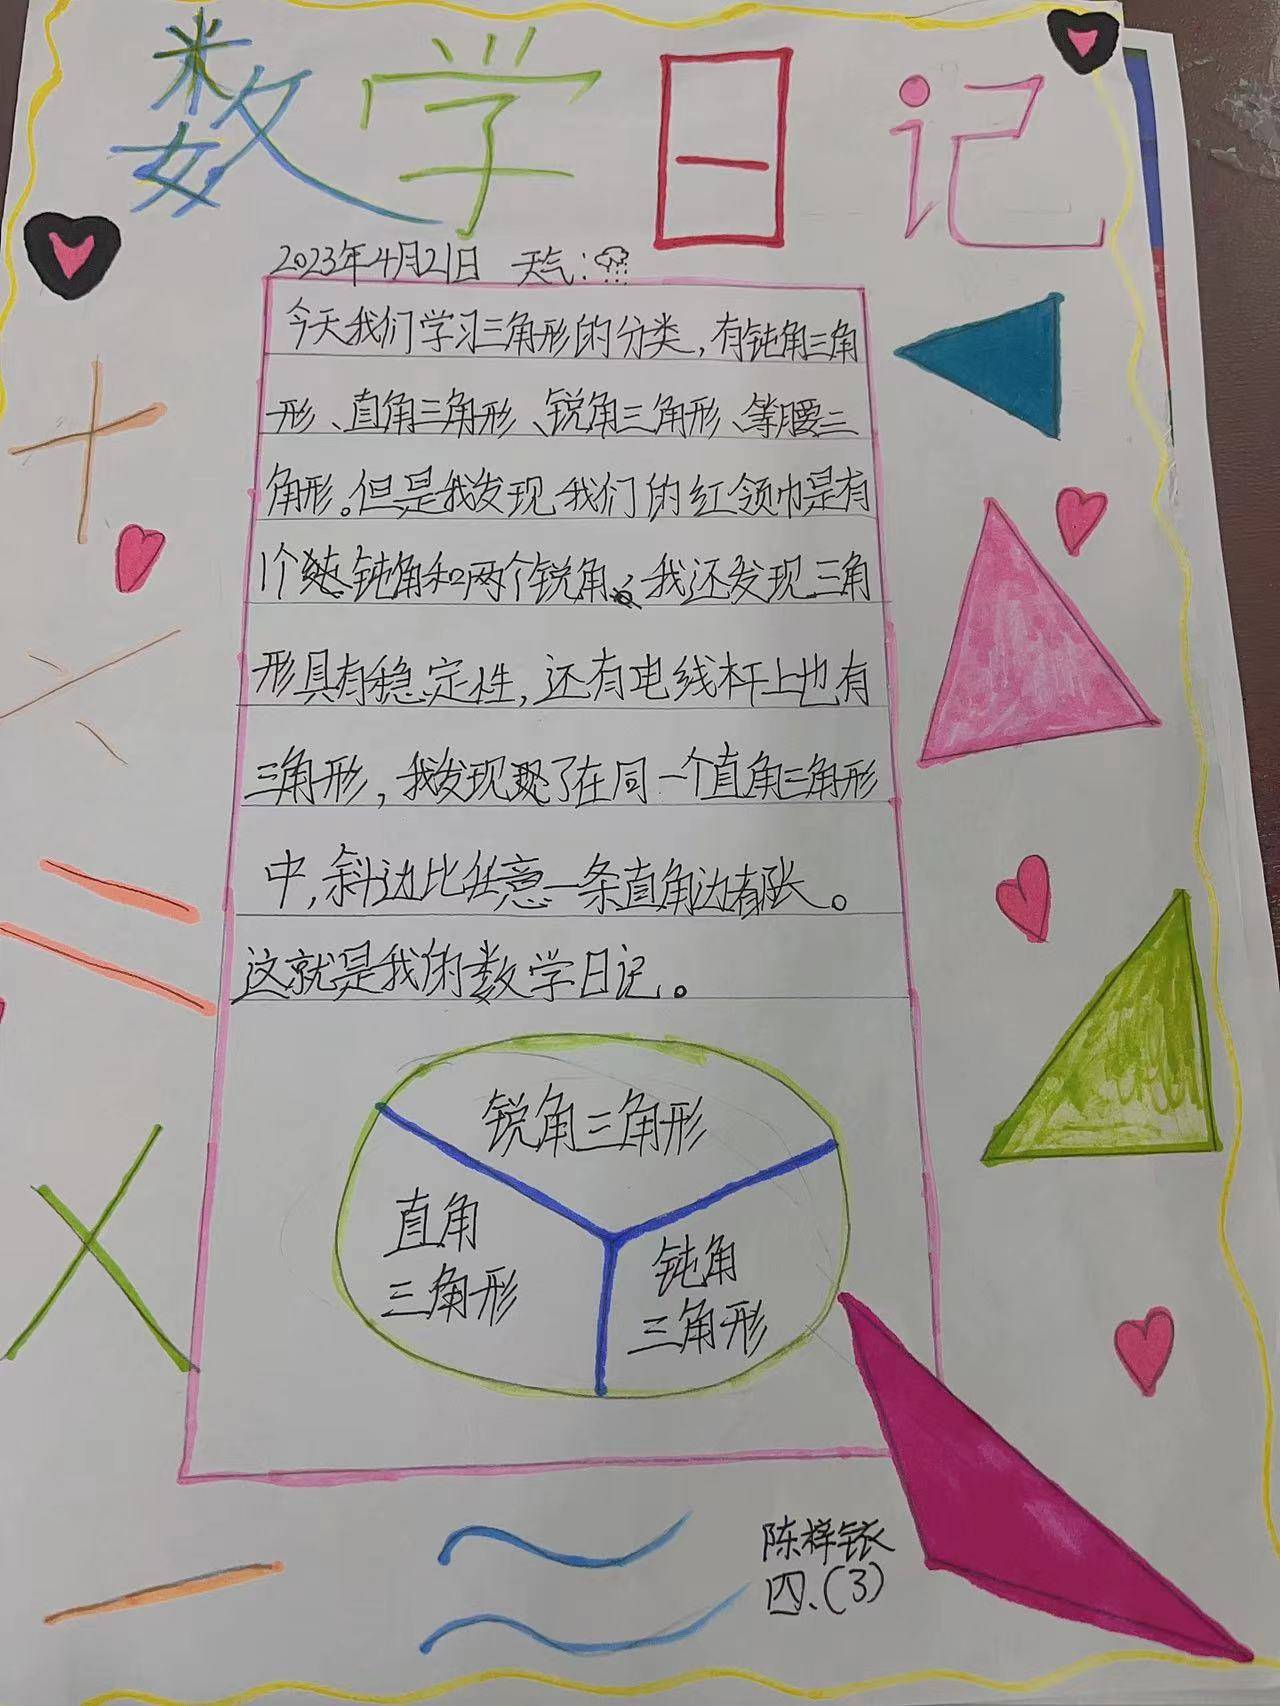 数学日记
2023年4月21日 天气:
今天我们学习三角形的分类,有钝角三角
形、直角三角形、锐角三角形、等腰三
角形。但是我发现我们的红领巾是有
1个钝角和两个锐角。我还发现三角
形具有稳定性,还有电线杆上也有
三角形,我发现了在同一个直角三角形
中,斜边比任意一条直角边都长。
这就是我的数学日记。
锐角三角形
直角
三角形
钝角
三角形
陈梓铱
四.(3)